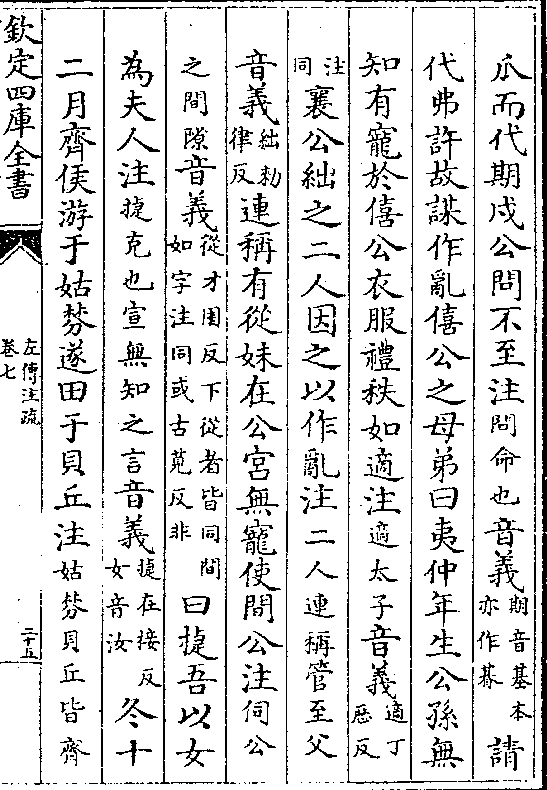 瓜而代期戍公問不至注問命也音義期音基本亦作朞請
代弗許故謀作亂僖公之母弟曰夷仲年生公孫無
知有寵於僖公衣服禮秩如適注適太子音義適丁厯反
注同襄公絀之二人因之以作亂注二人連稱管至父
音義絀勅律反連稱有從妹在公宮無寵使間公注伺公
之間隙音義從才用反下從者皆同間如字注同或古莧反非曰㨗吾以女
為夫人注㨗克也宣無知之言音義㨗在接反女音汝冬十
二月齊侯游于姑棼遂田于貝丘注姑棼貝丘皆齊
欽定四庫全書
左傳注疏
卷七
二十五